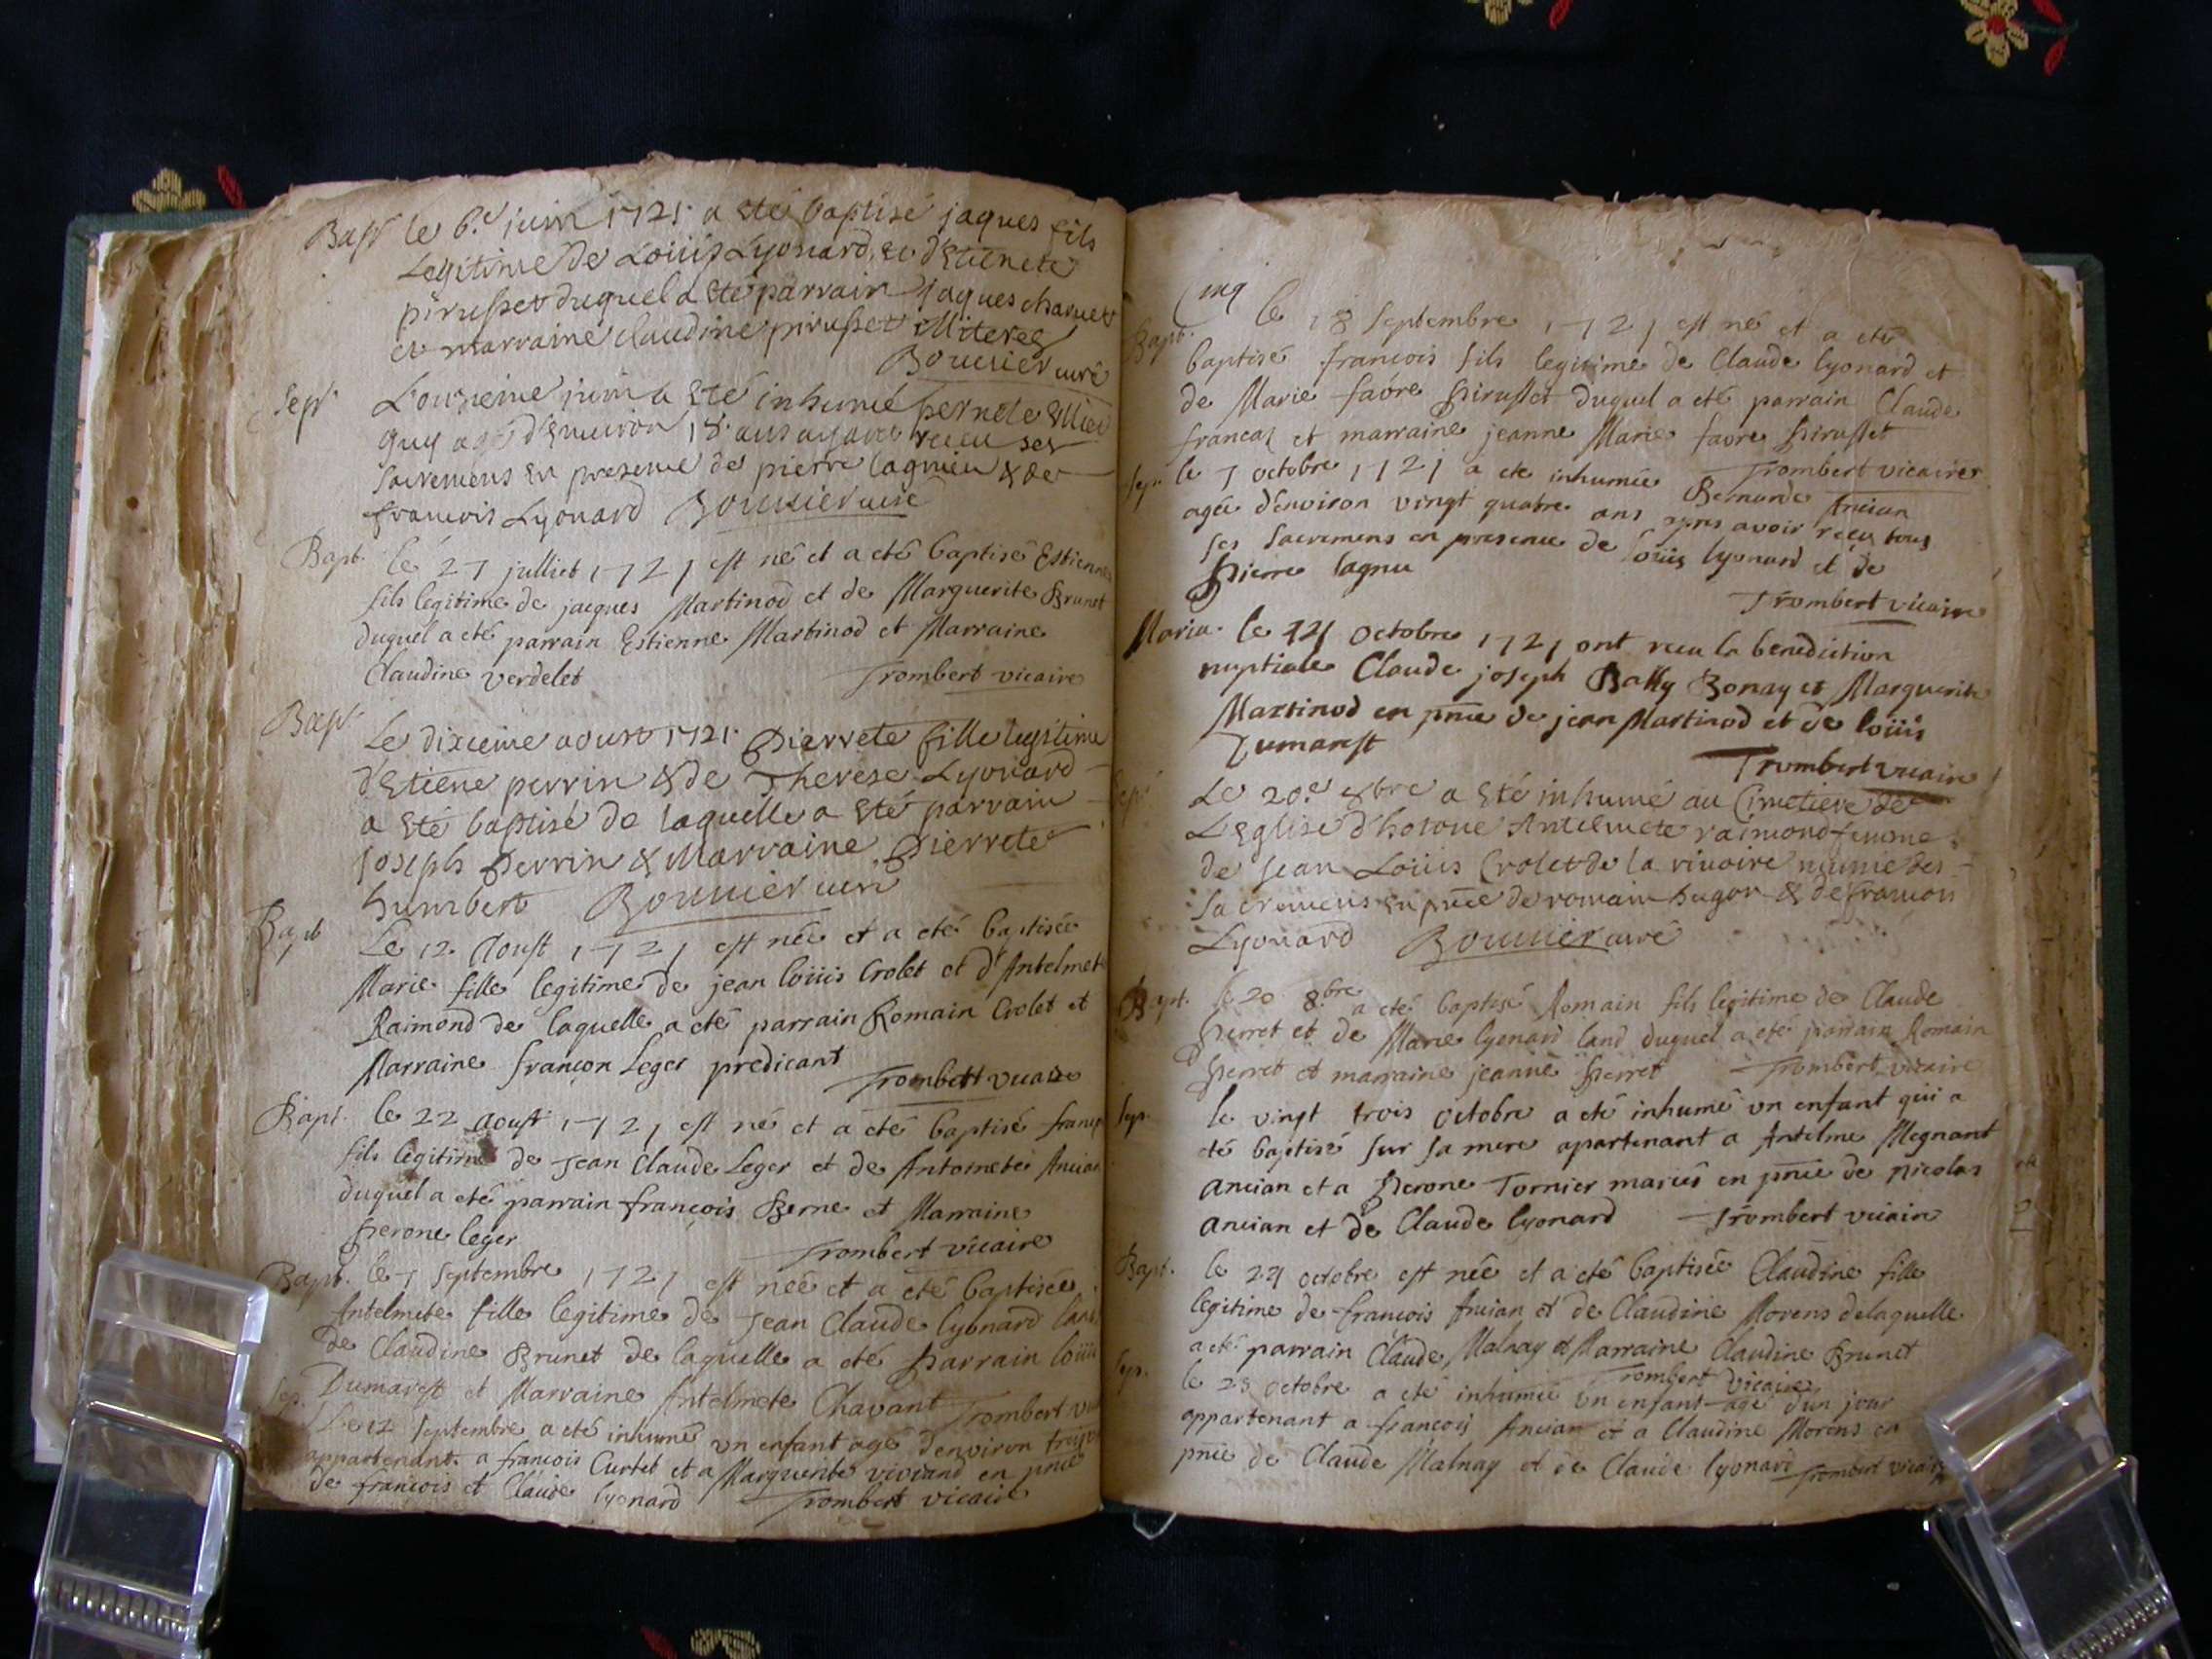 Bapt le 6.e juin 1721 a eté baptisé jaques fils
Legitime de Loüis Lyonard, et d'Etienete
pirusset duquel a eté parrain jaques charvet
et marraine claudine pirusset illiteres
Bouuier curé
Sept L'onzieme juin a eté inhumé pernete
guy agé d'enuiron 18 ans ayant receu ses
sacremens en presence de pierre lagnieu & de
francois Lyonard Bouuier curé
Bapt. le 27 julliet 1721 est né et a eté baptisé Estienne
fils legitime de jacques Martinod et de Marguerite Brunet
duquel a eté parrain Estienne Martinod et Marraine
Claudine verdelet Trombert vicaire
Bapt Le dixieme aoust 1721 Pierrete fille legitime
d'Etiene perrin & de Therese Lyonard
a eté baptisé de laquelle a eté parrain
Joseph Perrin & Marraine Pierrete
humbert Bouuier curé
Bapt Le 12 Aoust 1721 est née et a eté baptisée
Marie fille legitime de jean loüis Crolet et d'Antelmete
Raimond de laquelle a eté parrain Romain Crolet et
Marraine françon Leger predicant
Trombert vicaire
Bapt. le 22 Aoust 1721 est né et a eté baptisé
fils legitime de Jean Claude Leger et de Antoinete Ancian
duquel a eté parrain françois Berne et Marraine
Perone leger Trombert vicaire
Bapt. le 7 Septembre 1721 est née et a eté baptisée
Antelmete fille legitime de Jean Claude lyonard land
de Claudine Brunet de laquelle a eté Parrain loüis
Dumarest et Marraine Antelmete Chavant Trombert
Sep. Le 12 Septembre a eté inhumé un enfant agé d'environ
appartenant a francois Curtet et a Marguerite viviand en pnce
de françois et Claude lyonard Trombert vicaire
Cinq
Bapt. le 18 Septembre 1721 est né et a eté
baptisé francois fils legitime de Claude lyonard et
de Marie favre Pirusset duquel a eté parrain Claude
francaz et marraine jeanne Marie favre Pirusset
Trombert vicaire
Sep. le 7 octobre 1721 a eté inhumée Bernarde Ancian
agée d'environ vingt quatre ans apres avoir receu tous
ses Sacremens en presence de loüis lyonard et de
Pierre lagnu
Trombert vicaire
Maria. le 21 octobre 1721 ont receu la benediction
nuptiale Claude joseph Bally Bonay et Marguerite
Martinod en pnce de jean Martinod et de loüis
Dumarest
Trombert vicaire
Sept Le 20.e 8bre a eté inhumé au Cimetiere de
L'Eglise d'hotone Antelmete raimond femme
de Jean Loüis Crolet de la riuoire munie des
Sacremens en pnce de romain hugon & de francois
Lyonard Bouuier curé
Bapt. le 20 8.bre a eté baptisé Romain fils legitime de Claude
Perret et de Marie lyonard land duquel a eté parrain Romain
Perret et marraine jeanne Perret Trombert vicaire
Sep. le vingt trois octobre a eté inhumé un enfant qui a
eté baptisé sur sa mere apartenant a Antelme Megnant
Ancian et a Perone Tornier mariés en pnce de nicolas
Ancian et de Claude lyonard Trombert vicaire
Bapt. le 24 octobre est née et a eté baptisée Claudine fille
legitime de francois Ancian et de Claudine Morens delaquelle
a eté parrain Claude Malnay et Marraine Claudine Brunet
Trombert vicaire
Sep. le 25 octobre a eté inhumée un enfant agé d'un jour
appartenant a francois Ancian et a Claudine Morens en
pnce de Claude Malnay et de Claude lyonard Trombert vicaire